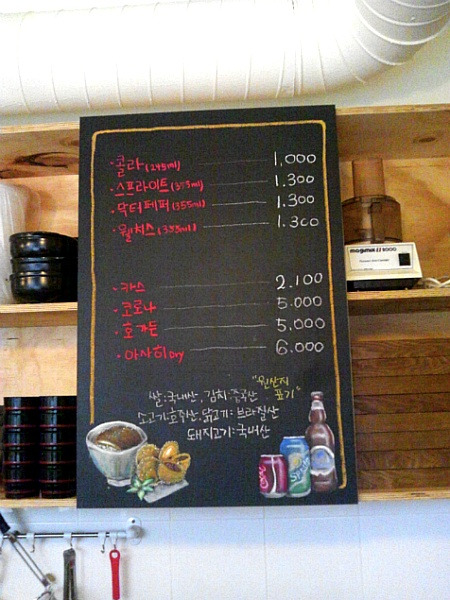 ·콜라(245ml) 1,000
·스프라이트(355ml) 1.300
·닥터페퍼(355ml) 1.300
·웰치스(355ml) 1.300
·카스 2.100
·코로나 5.000
·호가든 5,000
·아사히Dry 6,000
"원산지
표기"
쌀:국내산, 김치:중국산
소고기:호주산, 닭고기:브라질산
돼지고기:국내산
magimix 5000